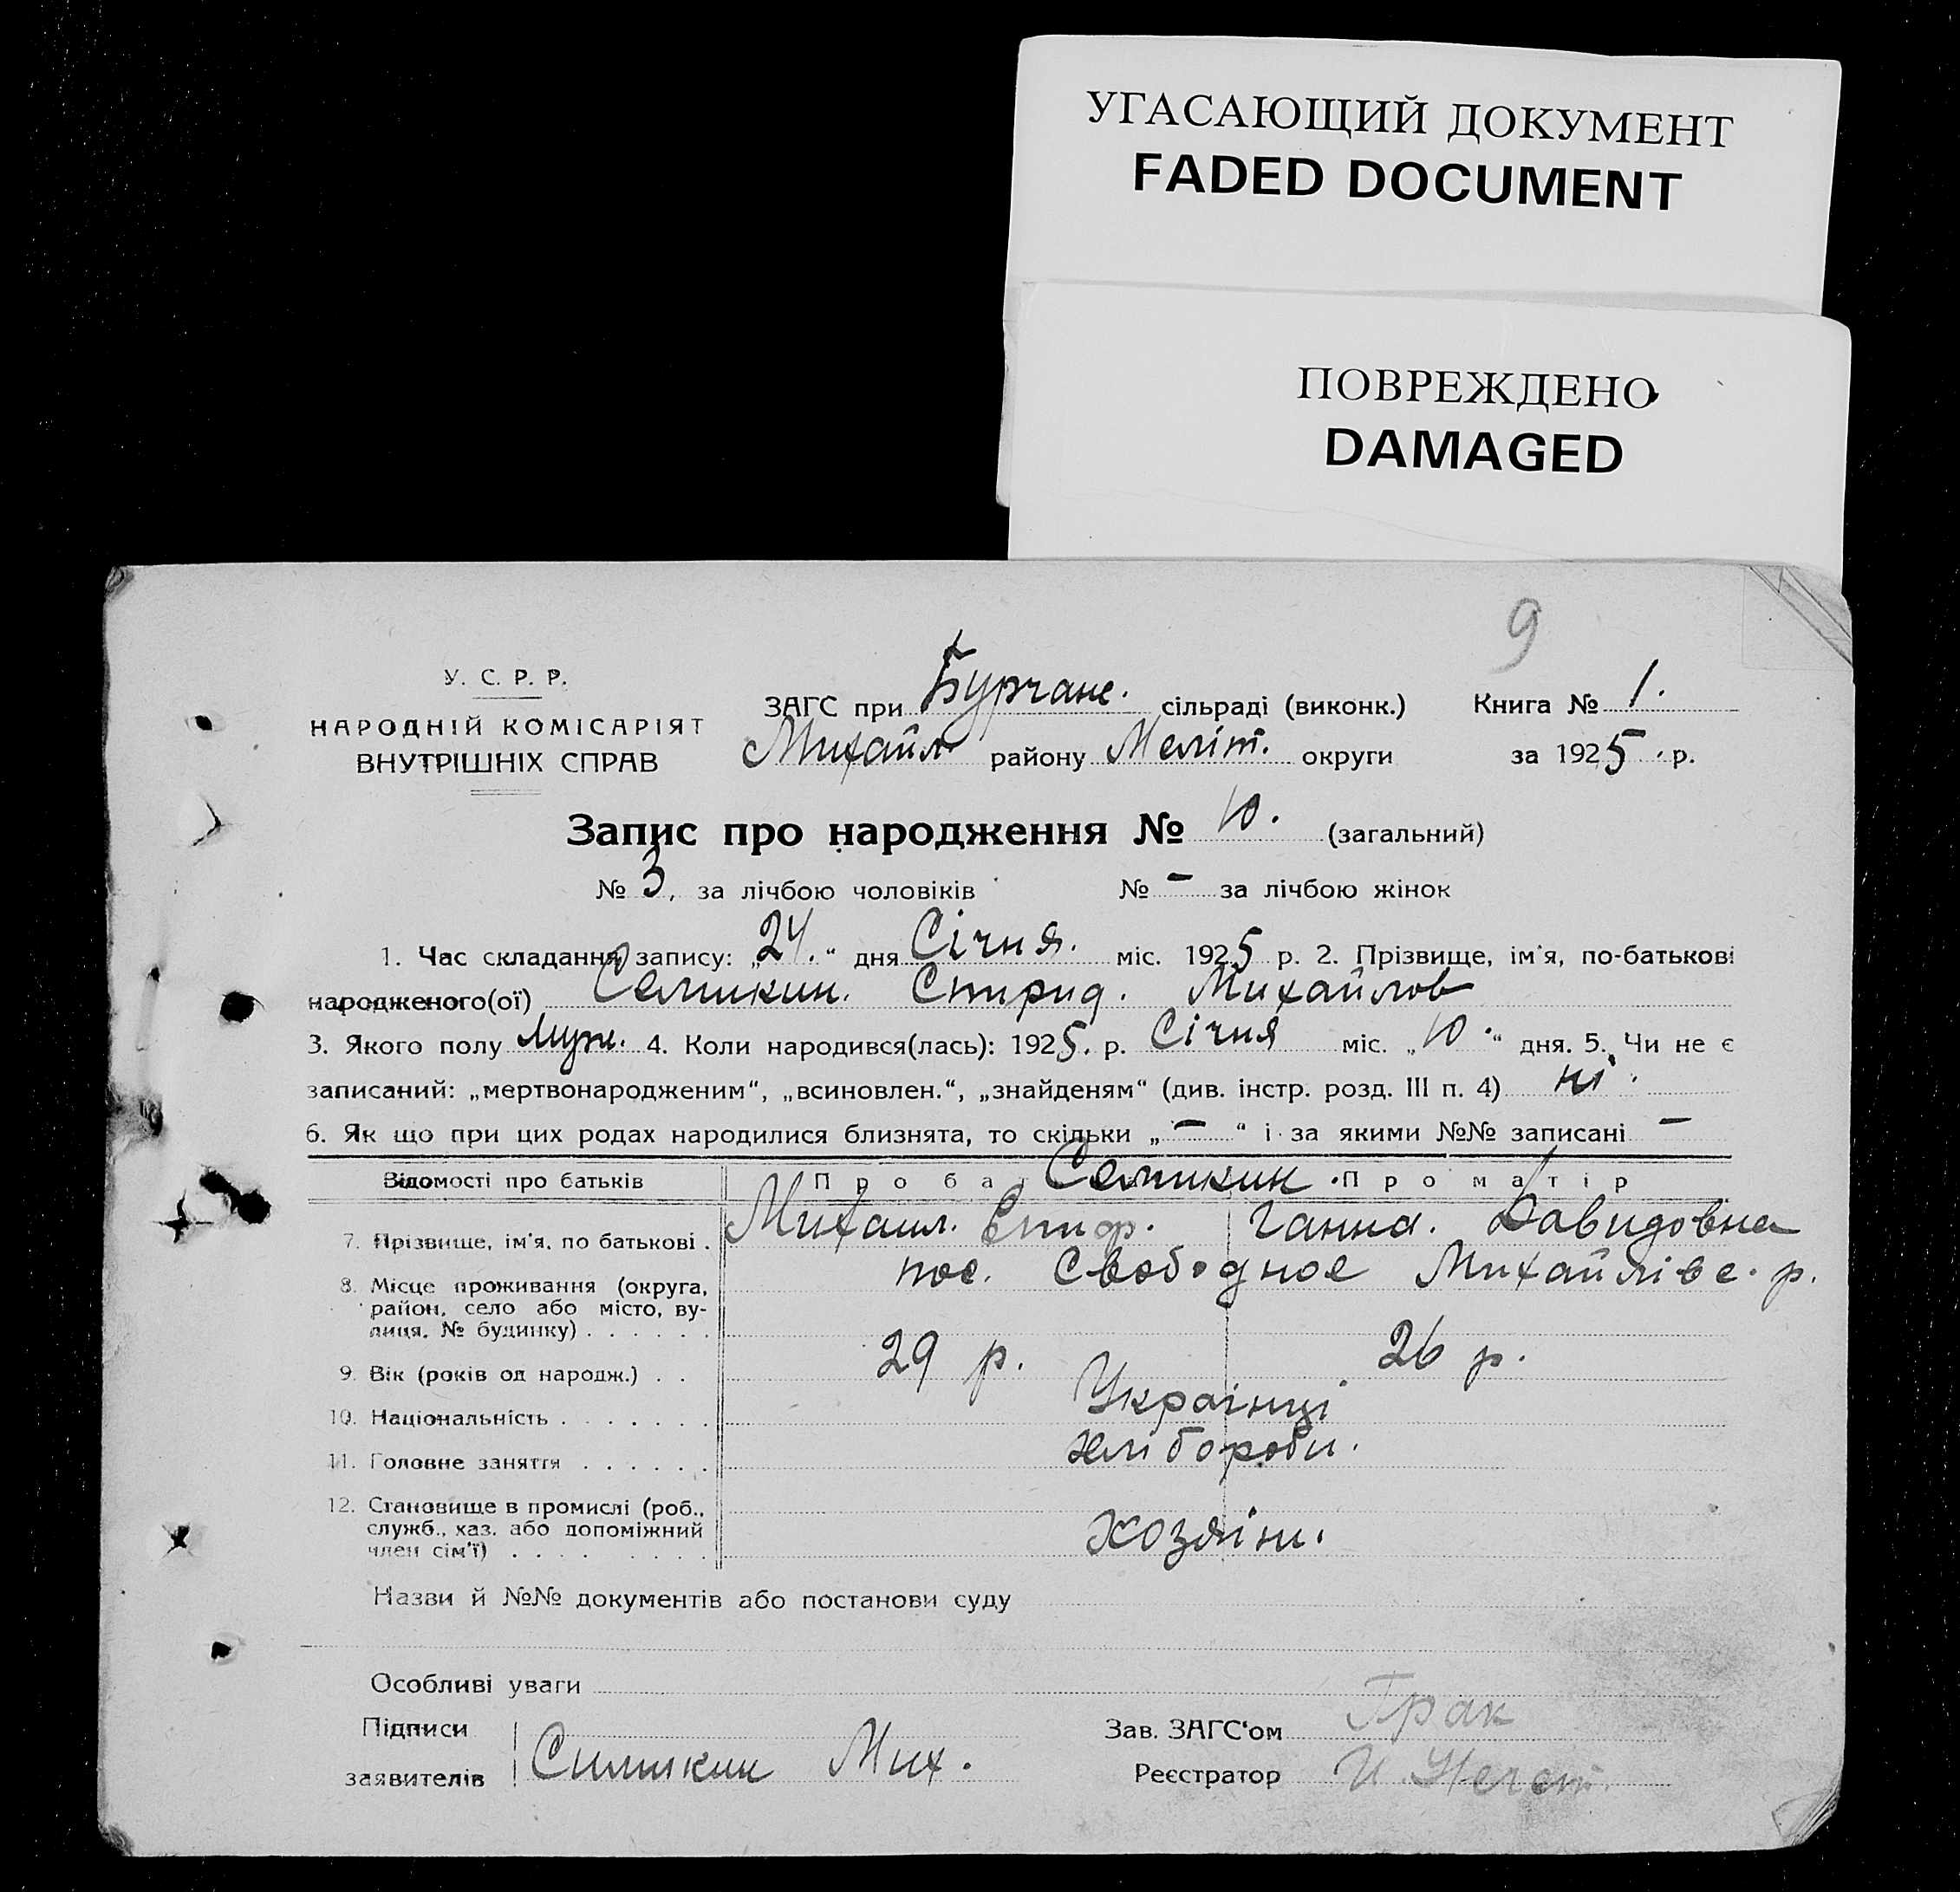 УГАСАЮЩИЙ ДОКУМЕНТ
FADED DOCUMENT
ПОВРЕЖДЕНО
DAMAGED
9
У. С. Р. Р.
НАРОДНІЙ КОМІСАРІЯТ
ВНУТРІШНІХ СПРАВ
ЗАГС при Бурчанс. сільраді (виконк.) Книга № 1.
Михайл. району Меліт. округи за 1925 р.
Запис про народження № 10. (загальний)
№ 3, за лічбою чоловіків № — за лічбою жінок
1. Час складання запису: „24.“ дня Січня. міс. 1925 р. 2. Прізвище, ім'я, по-батькові
народженого(ої) Спирид. Михайлов
3. Якого полу муж. 4. Коли народився(лась): 1925. р. Січня міс. „10.“ дня. 5. Чи не є
записаний: „мертвонародженим“, „всиновлен.“, „знайденям“ (див. інстр. розд. III п. 4) ні.
6. Як що при цих родах народилися близнята, то скільки „—“ і за якими №№ записані —
Відомості про батьків Про ба Про матір
7. Прізвище, ім'я, по батькові . Михаил. Спир. Ганна. Давидовна
8. Місце проживання (округа, район, село або місто, вулиця, № будинку) . . . . . . пос. Свободное Михайлівс. р.
9. Вік (років од народж.) . . 29 р. 26 р.
10. Національність . . . . . . . Українці
11. Головне заняття . . . . . . хлібороби.
12. Становище в промислі (роб., служб., хаз. або допоміжний член сім'ї) . . . . . . . . хозяїни.
Назви й №№ документів або постанови суду
Особливі уваги
Підписи Зав. ЗАГС'ом Грак
заявителів Мих. Реєстратор